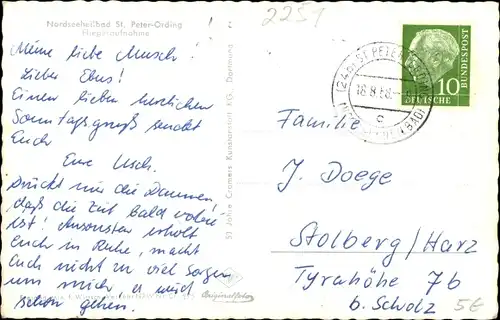 Nordseeheilbad St. Peter-Ording
Fliegeraufnahme
2251
Meine liebe Musch!
Lieber Ebus!
Einen lieben herzlichen
Sonntagsgruß sendet
Euch
Eure Usch.
Drückt mir die Daumen,
daß die Zeit bald vorbei
ist! Ansonsten erholt
Euch in Ruhe, macht
Euch nicht zu viel Sorgen
um mich, es wird
schon gehen.
Schöning & Co
Cramers Kunstanstalt KG. Dortmund
Originalfoto
(24b) ST PETER
18.8.58
c
10
DEUTSCHE
BUNDESPOST
Familie
J. Doege
Stolberg/Harz
Tyrahöhe 7b
b. Scholz
5€